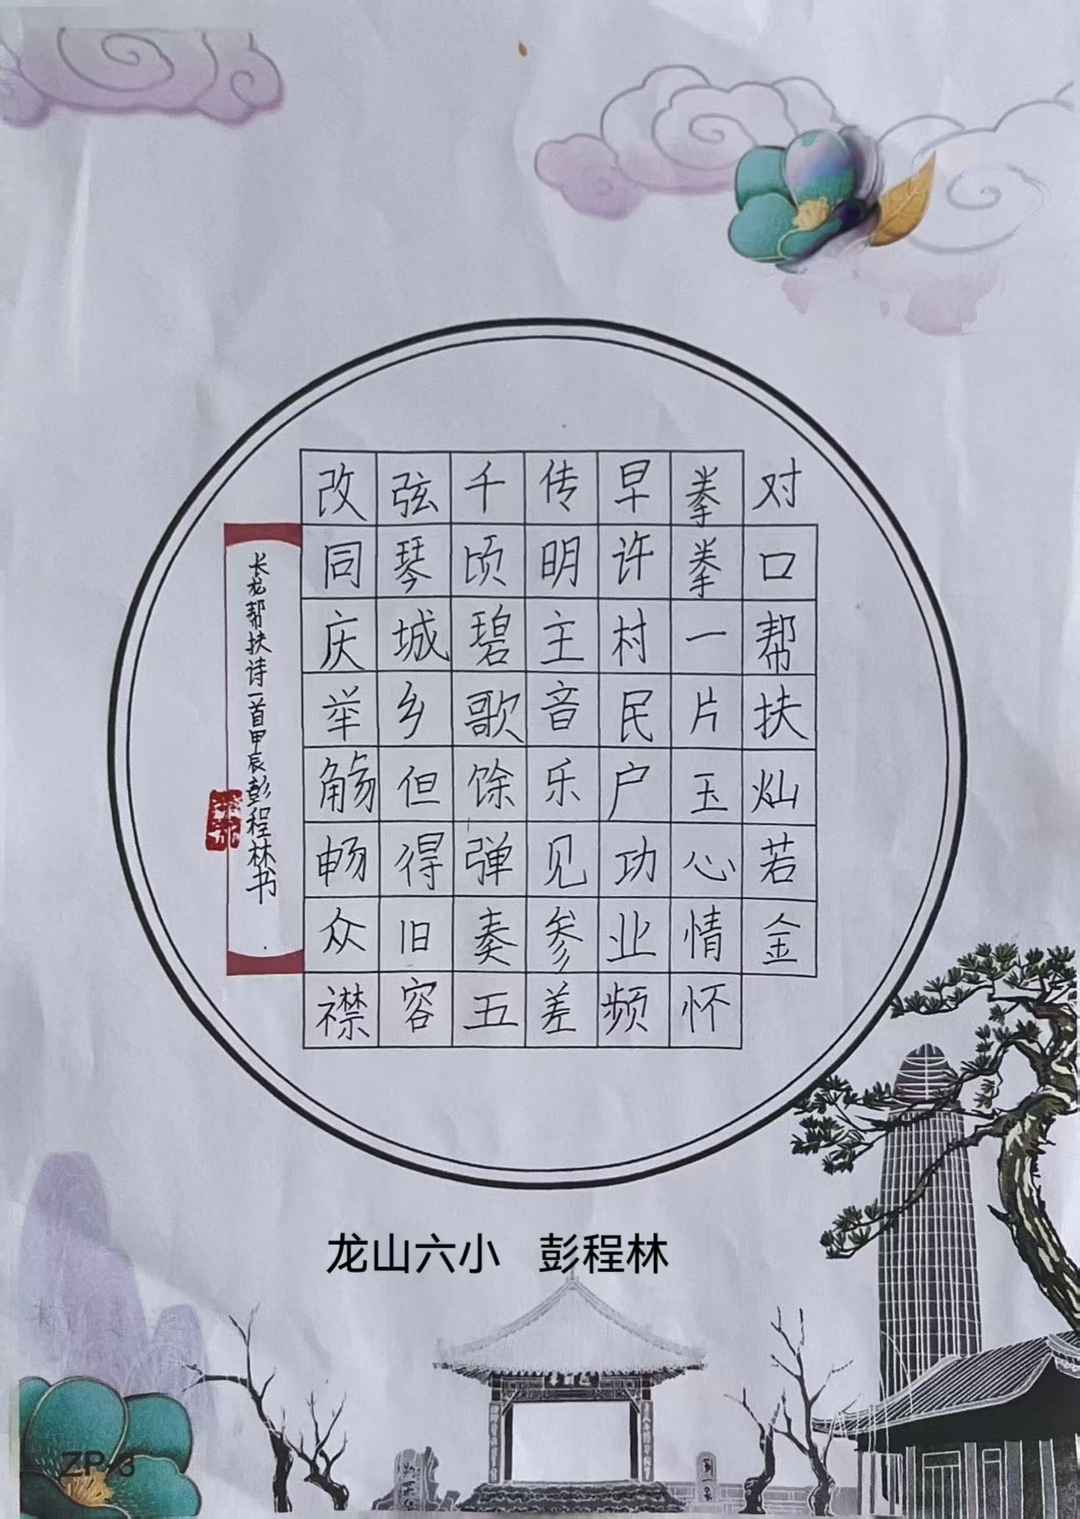 对口帮扶灿若金
拳拳一片玉心情怀
早许村民户功业频
传明主音乐见参差
千顷碧歌馀弹奏五
弦琴城乡但得旧容
改同庆举觞畅众襟
长龙帮扶诗一首甲辰彭程林书
龙山六小 彭程林
ZP/3